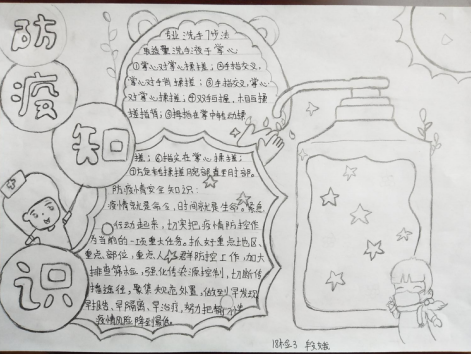 防
疫
知
识
专业洗手7步法
取适量洗手液于掌心
①掌心对掌心揉搓;②手指交叉,
掌心对手背揉搓;③手指交叉,掌心
对掌心揉搓;④双手互握,相互揉
搓指背;⑤拇指在掌中转动揉
搓;⑥指尖在掌心揉搓;
⑦旋转揉搓腕部直至肘部。
防疫情安全知识:
疫情就是命令,时间就是生命。紧急
行动起来,切实把疫情防控作
为当前的一项重大任务。抓好重点地区、
重点部位,重点人群防控工作,加大
排查筛检,强化传染源控制,切断传
播途径,聚集规范处置,做到早发现、
早报告、早隔离、早治疗,努力把
疫情风险降到最低。